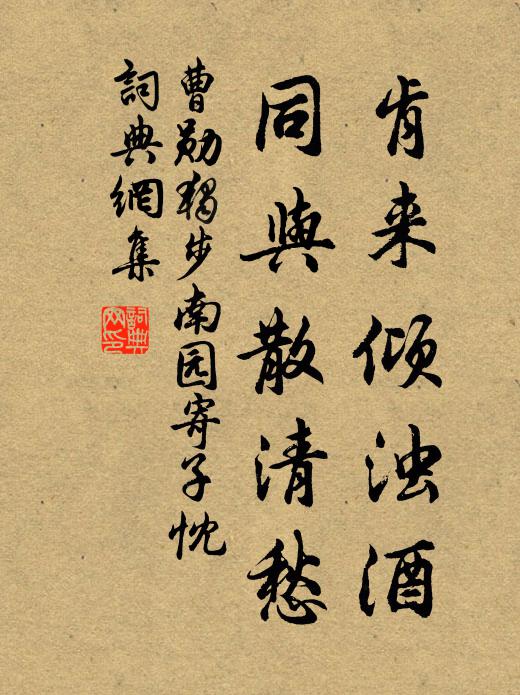 肯来倾浊酒
同與散清愁
曹勋獨步南园寄子忱
詞典網集
詞典网印